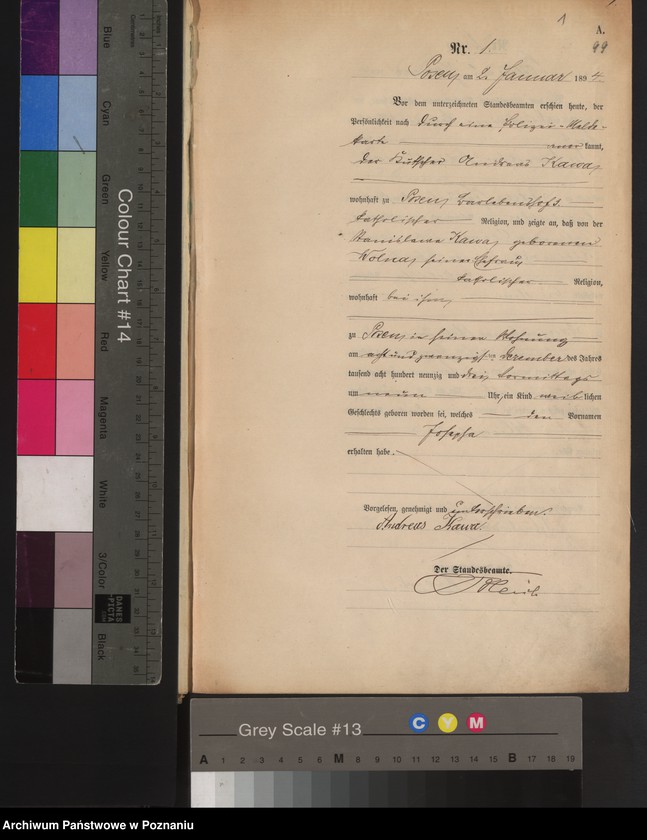 1
A.
99
Nr. 1.
Posen, am 2. Januar 1894
Vor dem unterzeichneten Standesbeamten erschien heute, der
Persönlichkeit nach durch eine Polizei-Melde-
karte kannt,
der Kutscher Andreas Kawa,
wohnhaft zu Posen,
katholischer Religion, und zeigte an, daß von der
Stanislawa Kawa, geborenen
Wolna, seiner Ehefrau,
katholischer Religion,
wohnhaft bei ihm,
zu Posen in seiner Wohnung
am acht und zwanzigsten Dezember des Jahres
tausend acht hundert neunzig und drei Vormittags
um neun Uhr, ein Kind weiblichen
Geschlechts geboren worden sei, welches den Vornamen
Josepha
erhalten habe.
Vorgelesen, genehmigt und unterschrieben.
Andreas Kawa.
Der Standesbeamte.
Colour Chart #14
Blue
Cyan
Green
Yellow
Red
Magenta
White
3/Color
Black
Centimetres
Inches
DANES
PICTA
.COM
Grey Scale #13
C Y M
A 1 2 3 4 5 6 M 8 9 10 11 12 13 14 15 B 17 18 19
Archiwum Państwowe w Poznaniu